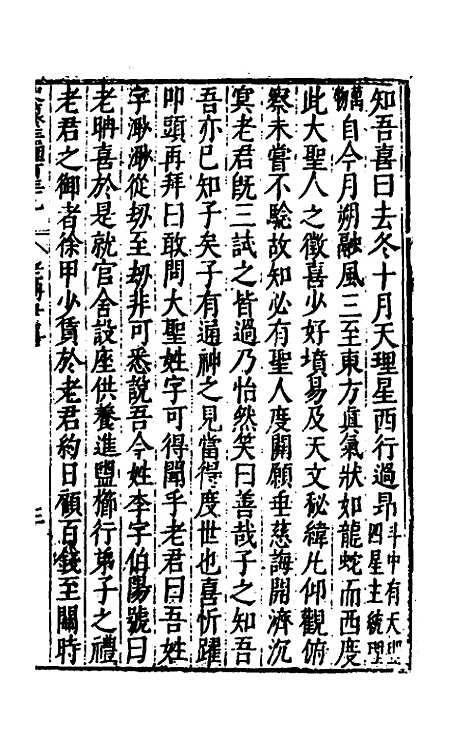 知吾喜曰去冬十月天理星西行過昴斗中有天理四星主統理
萬物自今月朔融風三至東方真氣狀如龍蛇而西度
此大聖人之徵喜少好墳易及天文秘緯凡仰觀俯
察未嘗不驗故知必有聖人度關願垂慈誨開濟沉
冥老君旣三試之皆過乃怡然笑曰善哉子之知吾
吾亦已知子矣子有通神之見當得度世也喜忻躍
叩頭再拜曰敢問大聖姓字可得聞乎老君曰吾姓
字渺渺從劫至劫非可悉說吾今姓李字伯陽號曰
老聃喜於是就官舍設座供養進盥櫛行弟子之禮
老君之御者徐甲少賃於老君約日顧百錢至關時